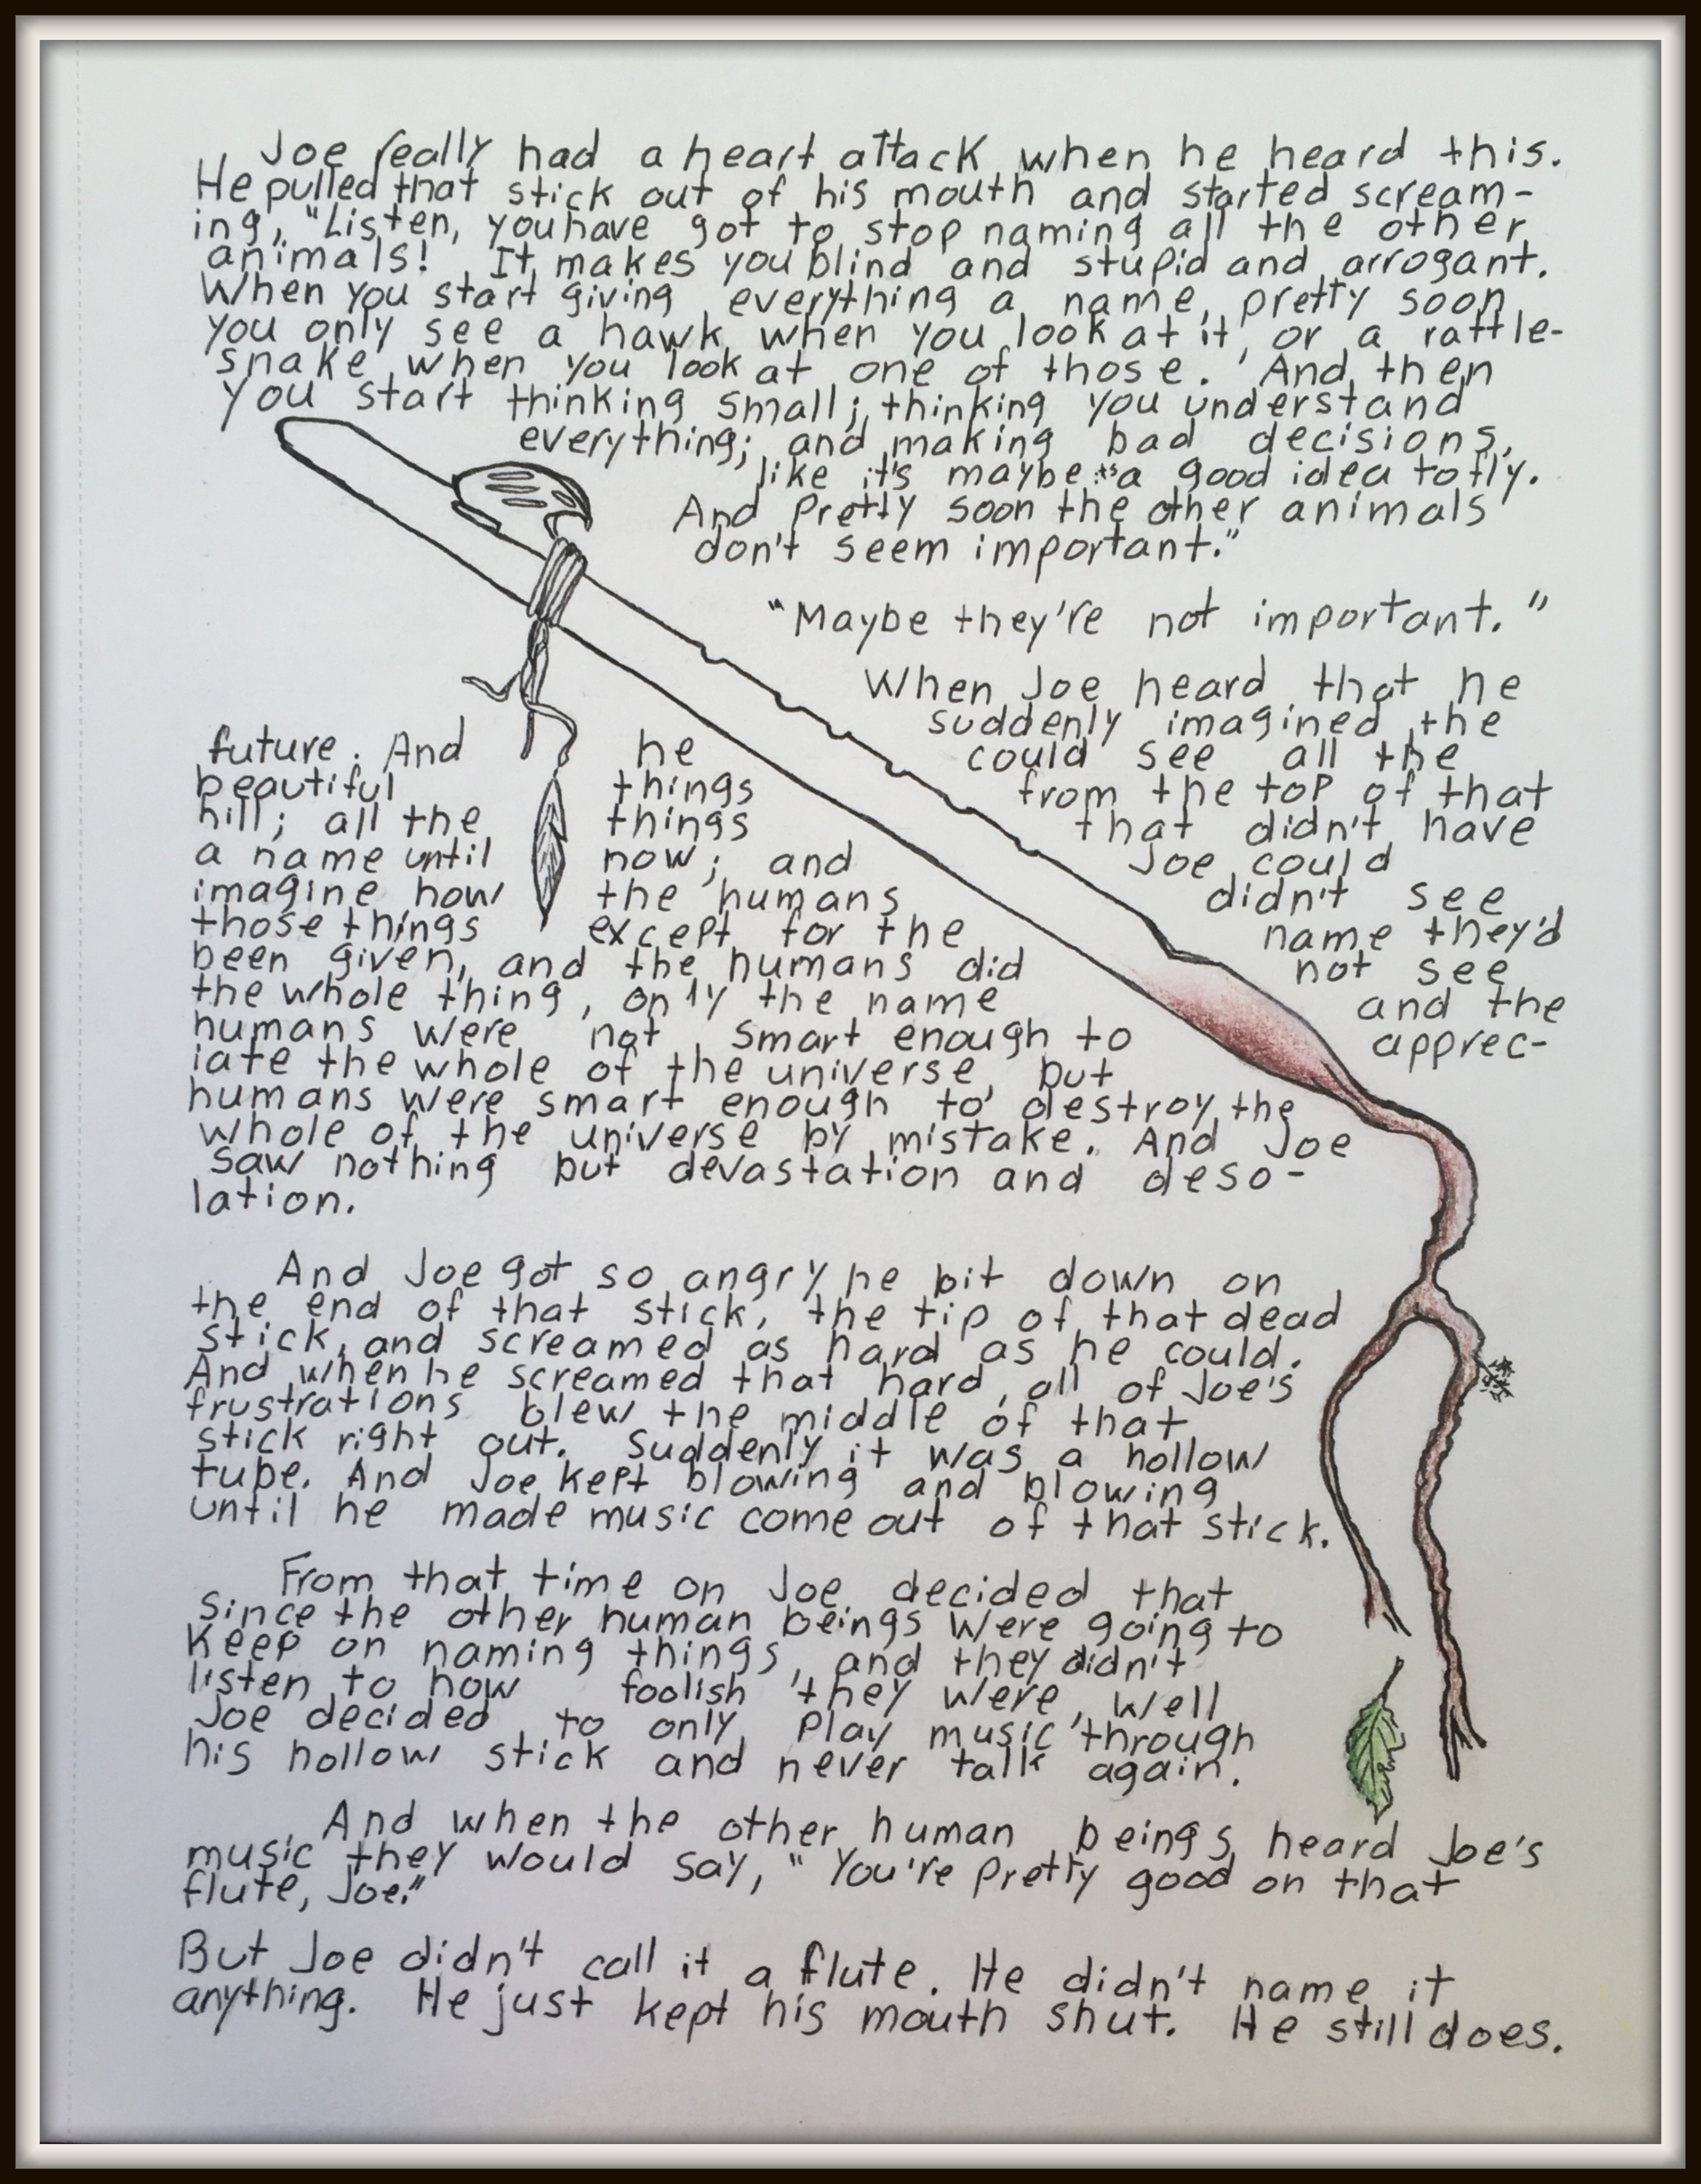 Joe really had a heart attack when he heard this.
He pulled that stick out of his mouth and started scream-
ing, "Listen, you have got to stop naming all the other
animals! It makes you blind and stupid and arrogant.
When you start giving everything a name, pretty soon
you only see a hawk when you look at it, or a rattle-
snake when you look at one of those. And then
you start thinking small; thinking you understand
everything; and making bad decisions,
like it's maybe a good idea to fly.
And pretty soon the other animals
don't seem important."
"Maybe they're not important."
When Joe heard that he
suddenly imagined the
future. And he could see all the
beautiful things from the top of that
hill; all the things that didn't have
a name until now; and Joe could
imagine how the humans didn't see
those things except for the name they'd
been given, and the humans did not see
the whole thing, only the name and the
humans were not smart enough to apprec-
iate the whole of the universe, but
humans were smart enough to destroy the
whole of the universe by mistake. And Joe
saw nothing but devastation and deso-
lation.
And Joe got so angry he bit down on
the end of that stick, the tip of that dead
stick, and screamed as hard as he could.
And when he screamed that hard, all of Joe's
frustrations blew the middle of that
stick right out. Suddenly it was a hollow
tube. And Joe kept blowing and blowing
until he made music come out of that stick.
From that time on Joe decided that
since the other human beings were going to
keep on naming things, and they didn't
listen to how foolish they were, well
Joe decided to only play music through
his hollow stick and never talk again.
And when the other human beings heard Joe's
music they would say, "You're pretty good on that
flute, Joe."
But Joe didn't call it a flute. He didn't name it
anything. He just kept his mouth shut. He still does.